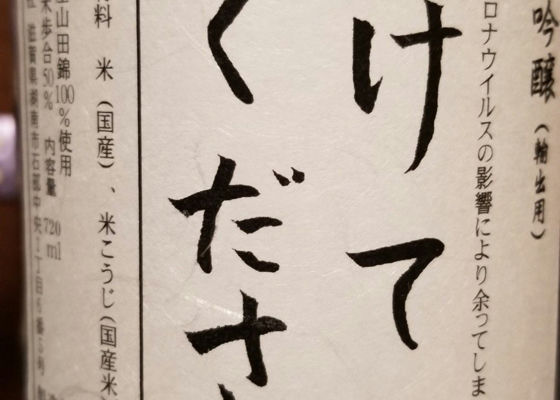 吟醸(輸出用)
ロナウイルスの影響により余ってしま
けて
くださ
料 米(国産)、米こうじ(国産米)
山田錦100%使用
米歩合50% 内容量 720ml
滋賀県湖南市石部中央1丁目6番5号